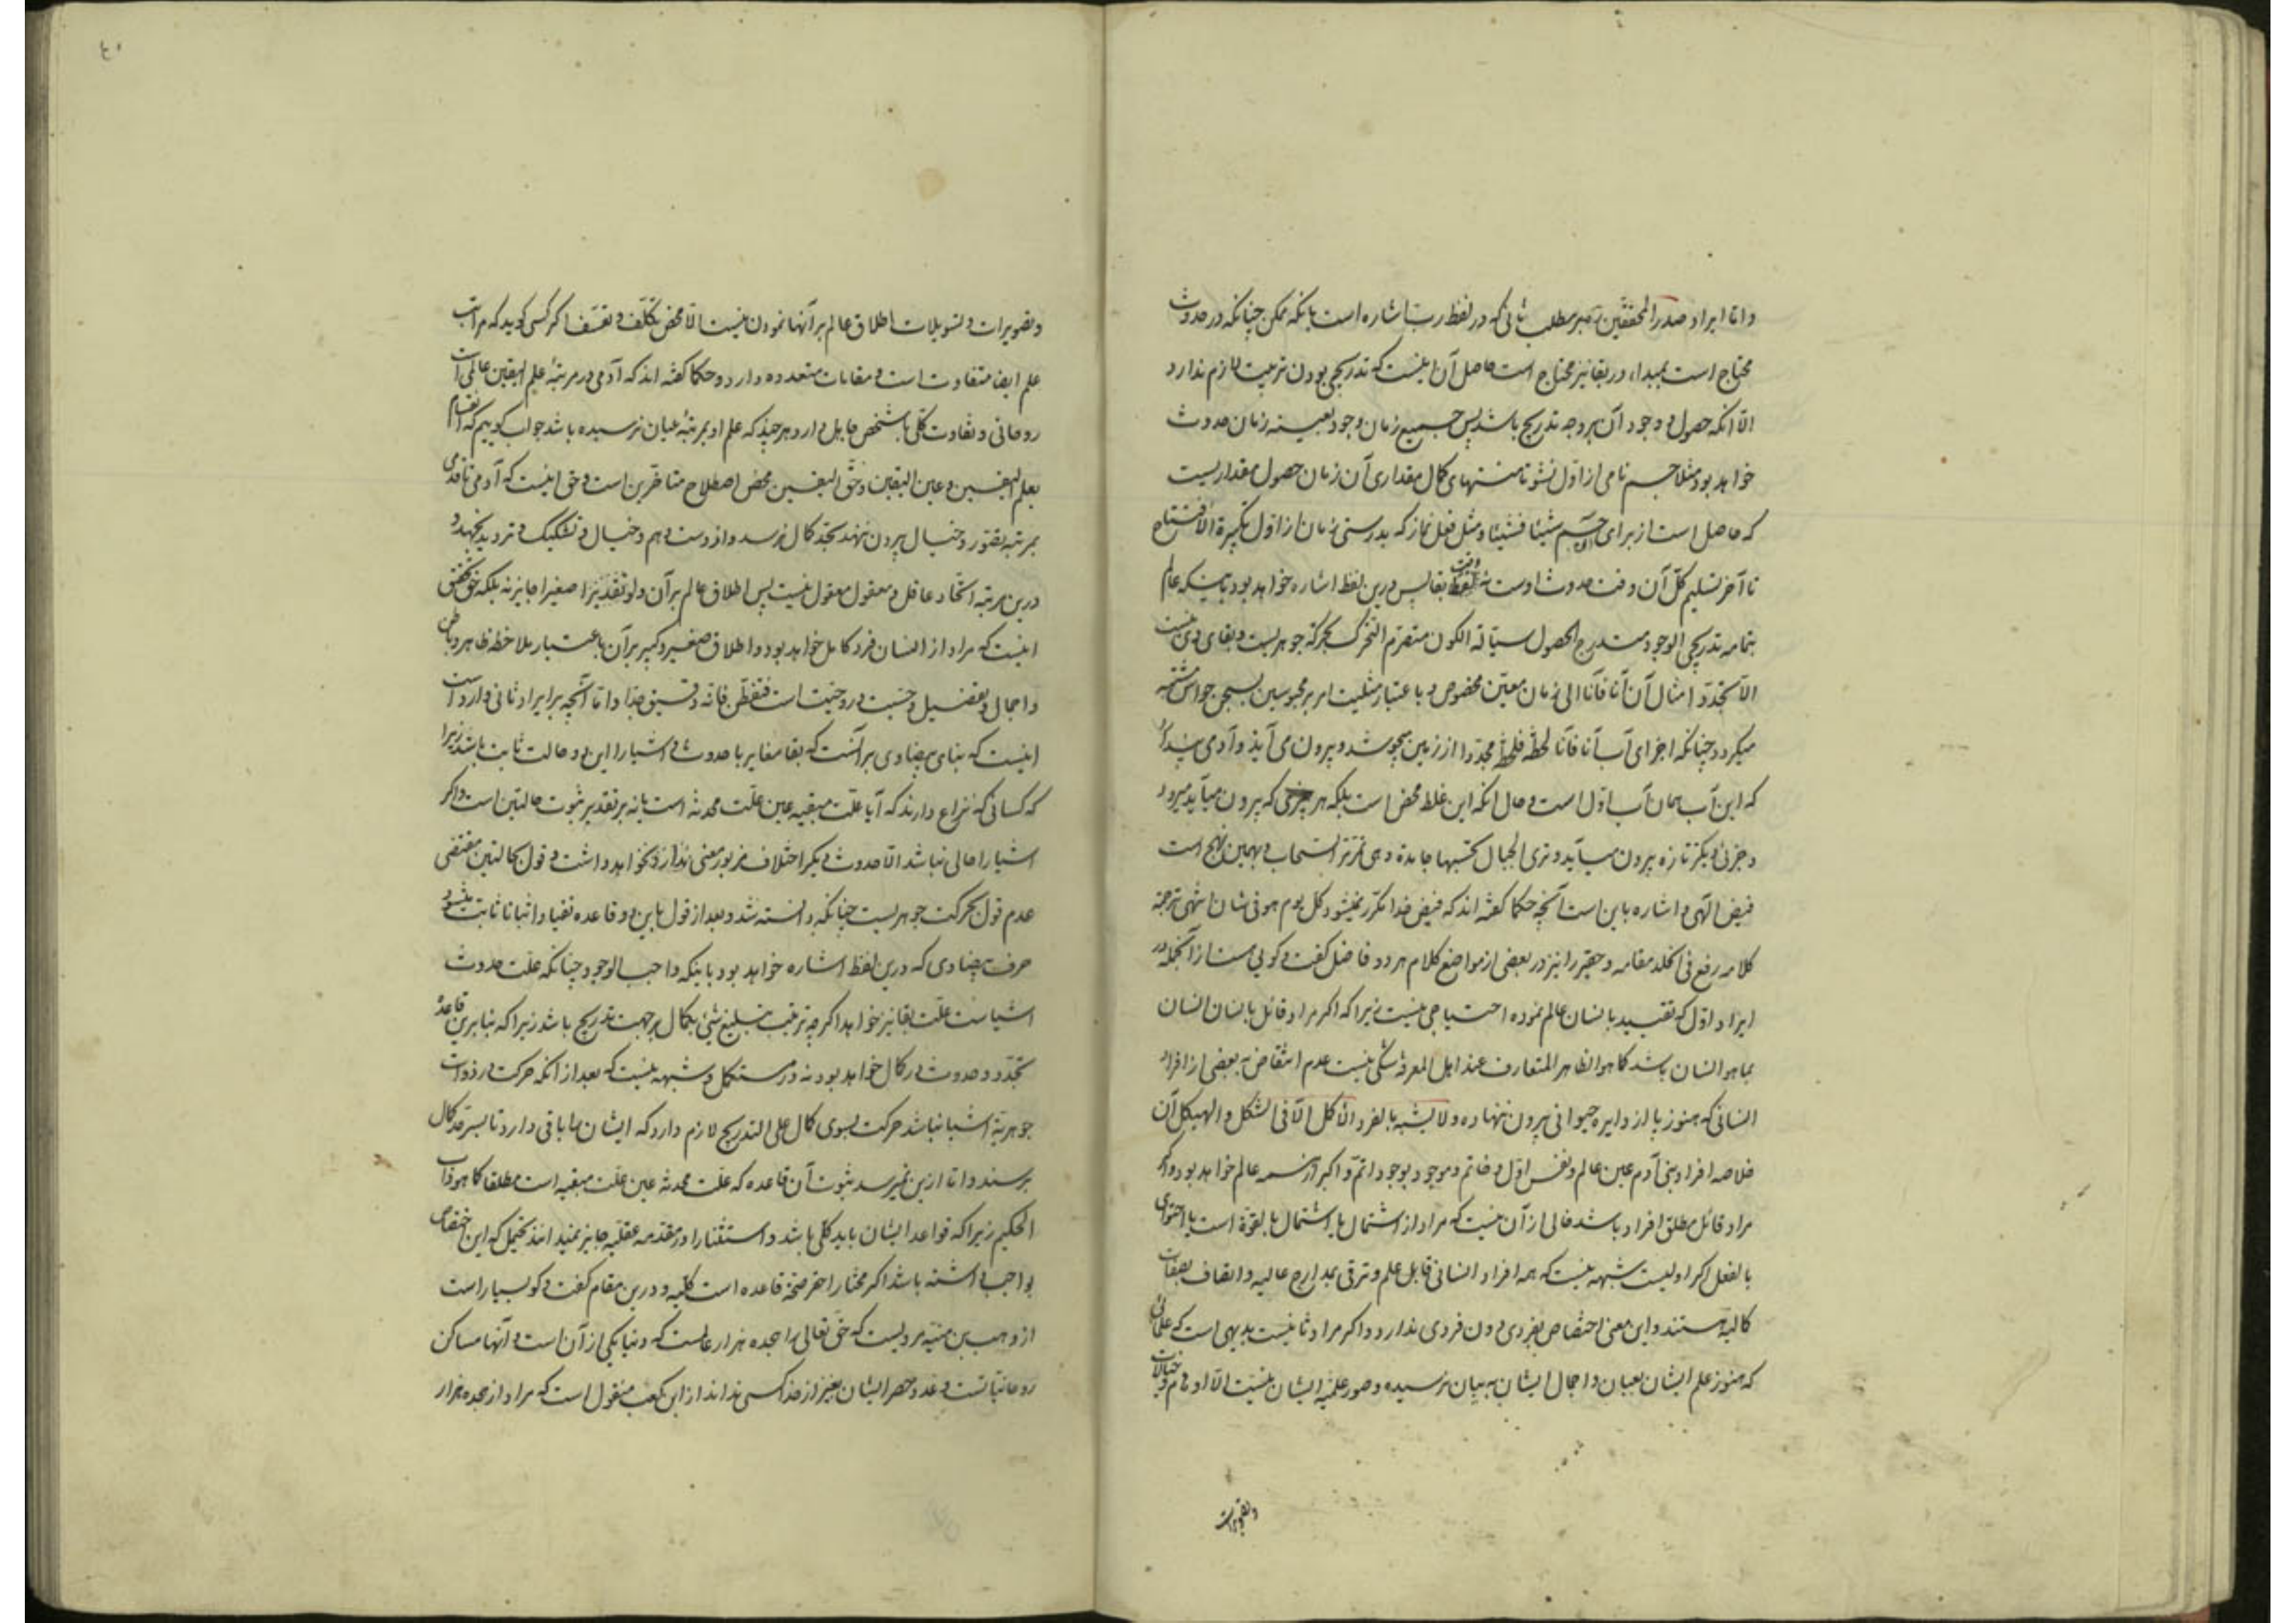 واما ایراد صدر المحققین بر مطلب ثانی که در لفظ رب اشاره است بانکه ممکن چنانکه در حدوث
محتاج است بمبداء در بقا نیز محتاج است حاصل آن اینست که تدریجی بودن تربیت لازم ندارد
الا انکه حصول و وجود آن بر وجه تدریج باشد پس جمیع زمان وجود بعینه زمان حدوث
خواهد بود مثلا جسم نامی از اول نشو تا منتهای کمال مقداری آن زمان حصول مقداریست
که حاصل است از برای جسم شیئا فشیئا و مثل فعل نماز که بدرستی زمان از اول تکبیرة الافتتاح
تا آخر تسلیم کل آن وقت حدوث اوست نه وقت بقا پس درین لفظ اشاره خواهد بود باینکه عالم
بتمامه تدریجی الوجود متدرج الحصول سیالة الکون متصرم التحرک بحرکة جوهریست و بقای وی نیست
الا بتجدد امثال آن آنا فآنا الی زمان معین مخصوص و باعتبار مثلیت امر بر محبوسین بسجن حواس مشتبه
میکردد چنانکه اجزای آب آنا فآنا لحظة فلحظة مجددا از زمین میجوشد و بیرون می آید و آدمی پندارد
که این آب همان آب اول است و حال انکه این غلط محض است بلکه هر جزئی که بیرون میآید میرود
و جزئی دیکر تازه بیرون میآید وتری الجبال تحسبها جامدة وهی تمر مر السحاب و بهمین نهج است
فیض الهی و اشاره باین است آنچه حکما کفته اند که فیض خدا مکرر نمیشود کل یوم هو فی شان انتهی ترجمة
کلامه رفع فی الخلد مقامه و حقیر را نیز در بعضی از مواضع کلام هر دو فاضل کفت و کویی هست از آنجمله در
ایراد اول که تقیید بانسان عالم نموده احتیاجی نیست زیرا که اکر مراد قائل بانسان انسان
بما هو انسان باشد کما هو الظاهر المتعارف عند اهل المعرفة شکی نیست عدم انتقاض به بعضی از افراد
انسانی که هنوز پا از دایره حیوانی بیرون ننهاده ولا یشبه بالفرد الاکمل الا فی الشکل والهیکل آن
خلاصه افراد بنی آدم عین عالم و نفس اول و خاتم و موجود بوجود اتم و اکبر از همه عالم خواهد بود و اکر
مراد قائل مطلق افراد باشد خالی از آن نیست که مراد از اشتمال یا اشتمال بالقوة است یا احتوای
بالفعل اکر اولیست شبهه نیست که همه افراد انسانی قابل علم و ترقی بمدارج عالیه و اتصاف بصفات
کمالیه هستند و این معنی اختصاص بفردی دون فردی ندارد و اکر مراد ثانیست بدیهی است که علمائی
که هنوز علم ایشان بعیان و اجمال ایشان به بیان نرسیده و صور علمیه ایشان نیست الا اوهام و خیالات
و تصویرات
و تصویرات و تسویلات اطلاق عالم بر آنها نمودن نیست الا محض تکلف و تعسف اکر کسی کوید که مراتب
علم ایضا متفاوت است و مقامات متعدده دارد و حکما کفته اند که آدمی در مرتبهٔ علم الیقین عالمی است
روحانی و تفاوت کلی با شخص جاهل دارد هر چند که علم او بمرتبهٔ عیان نرسیده باشد جواب کوییم که انقسام
بعلم الیقین و عین الیقین و حق الیقین محض اصطلاح متاخرین است و حق اینست که آدمی تا قدمی
بمرتبه تصور و خیال بیرون ننهد بحد کمال نرسد و از دست وهم و خیال و تشکیک و تردید نجهد و
درین مرتبه اتحاد عاقل و معقول معقول نیست پس اطلاق عالم بر آن ولو تقدیرا صغیرا جایز نه بلکه حق تحقیق
اینست که مراد از انسان فرد کامل خواهد بود و اطلاق صغیر و کبیر بر آن باعتبار ملاحظه ظاهر و باطن
و اجمال و تفصیل و جسمیت و روحیت است فتفطن فانه دقیق جدا و اما آنچه بر ایراد ثانی وارد است
اینست که بنای بیضاوی بر آنست که بقا مغایر با حدوث و اشیا را این دو حالت ثابت باشد زیرا
که کسانی که نزاع دارند که آیا علت مبقیه عین علت محدثه است یا نه بر تقدیر ثبوت حالتین است و اکر
اشیا را حالی نباشد الا حدوث دیکر اختلاف مزبور معنی ندارد و نخواهد داشت و قول بحالتین مقتضی
عدم قول بحرکت جوهریست چنانکه دانسته شد و بعد از قول باین دو قاعده نفیا و اثباتا ثابت میشود
حرف بیضاوی که درین لفظ اشاره خواهد بود باینکه واجب الوجود چنانکه علت حدوث
اشیاست علت بقا نیز خواهد اکر چه تربیت تبلیغ شیئ بکمال بر جهت تدریج باشد زیرا که بنابرین قاعدهٔ
تجدد و حدوث در کمال خواهد بود نه در مستکمل و شبهه نیست که بعد از انکه حرکت در ذوات
جوهریة اشیا نباشد حرکت بسوی کمال علی التدریج لازم دارد که ایشان را باقی دارد تا بسر حد کمال
برسند و اما ازین نمیرسد ثبوت آن قاعده که علت محدثه عین علت مبقیه است مطلقا کما هو داب
الحکیم زیرا که قواعد ایشان باید کلی باشد و استثنا را در مقدمه عقلیه جایز نمیدانند یحتمل که این اختصاص
بواجب داشته باشد اکر مختار احقر صحة قاعده است کلیه و درین مقام کفت و کو بسیار است
از وهب بن منبه مرویست که حق تعالی را هجده هزار عالمست که دنیا یکی از آن است و آنها مساکن
روحانیاتست و عدد و حصر ایشان بغیر از خدا کسی نداند از ابی کعب منقول است که مراد از هجده هزار